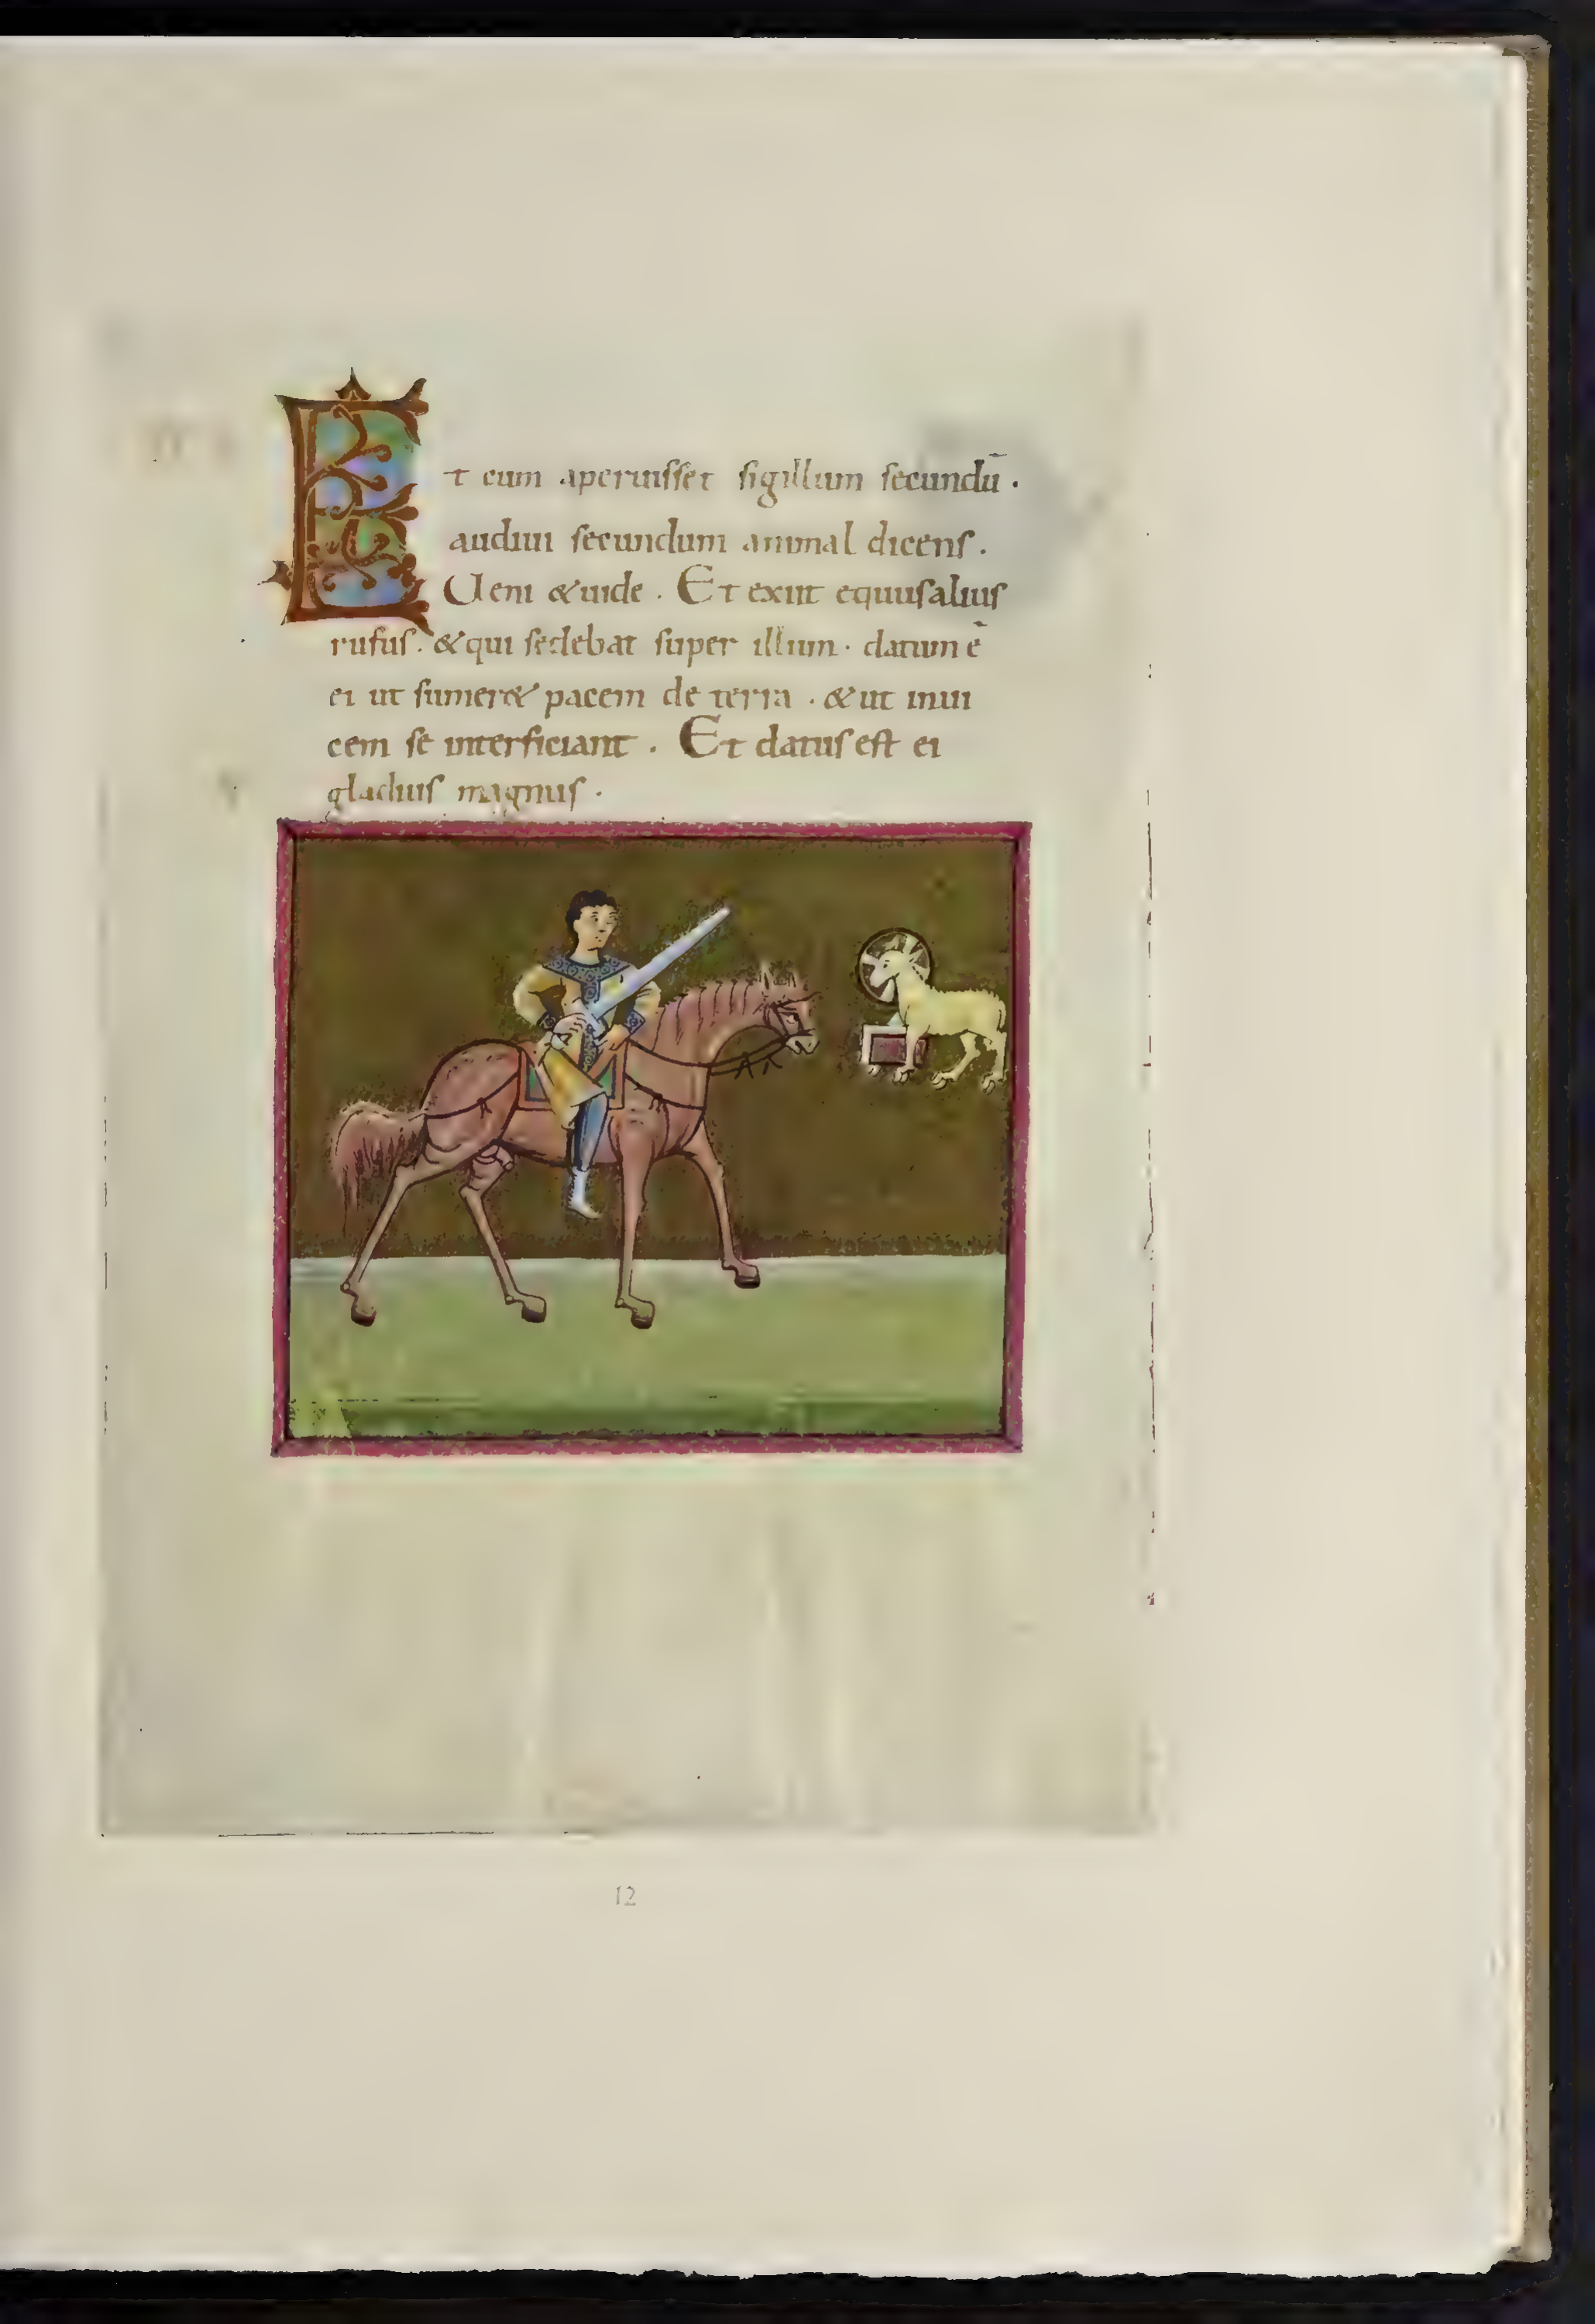 Et cum aperuisset sigillum secundū·
audiui secundum animal dicens.
Ueni & uide. Et exiit equus alius
rufus. & qui sedebat super illum· datum ē
ei ut sumer& pacem de terra. & ut inui
cem se interficiant. Et datus est ei
gladius magnus·
12